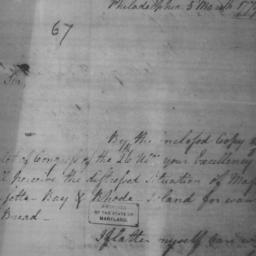 Philadelphia 5 March 177
67
Sir,
By the inclosed Copy
of Congress of the 26 Ulto. your Excellency
perceive the distressed situation of Mass
Bay & Rhode Island for want
Bread.
ARCHIVES
OF THE STATE OF
MARYLAND
I flatter myself